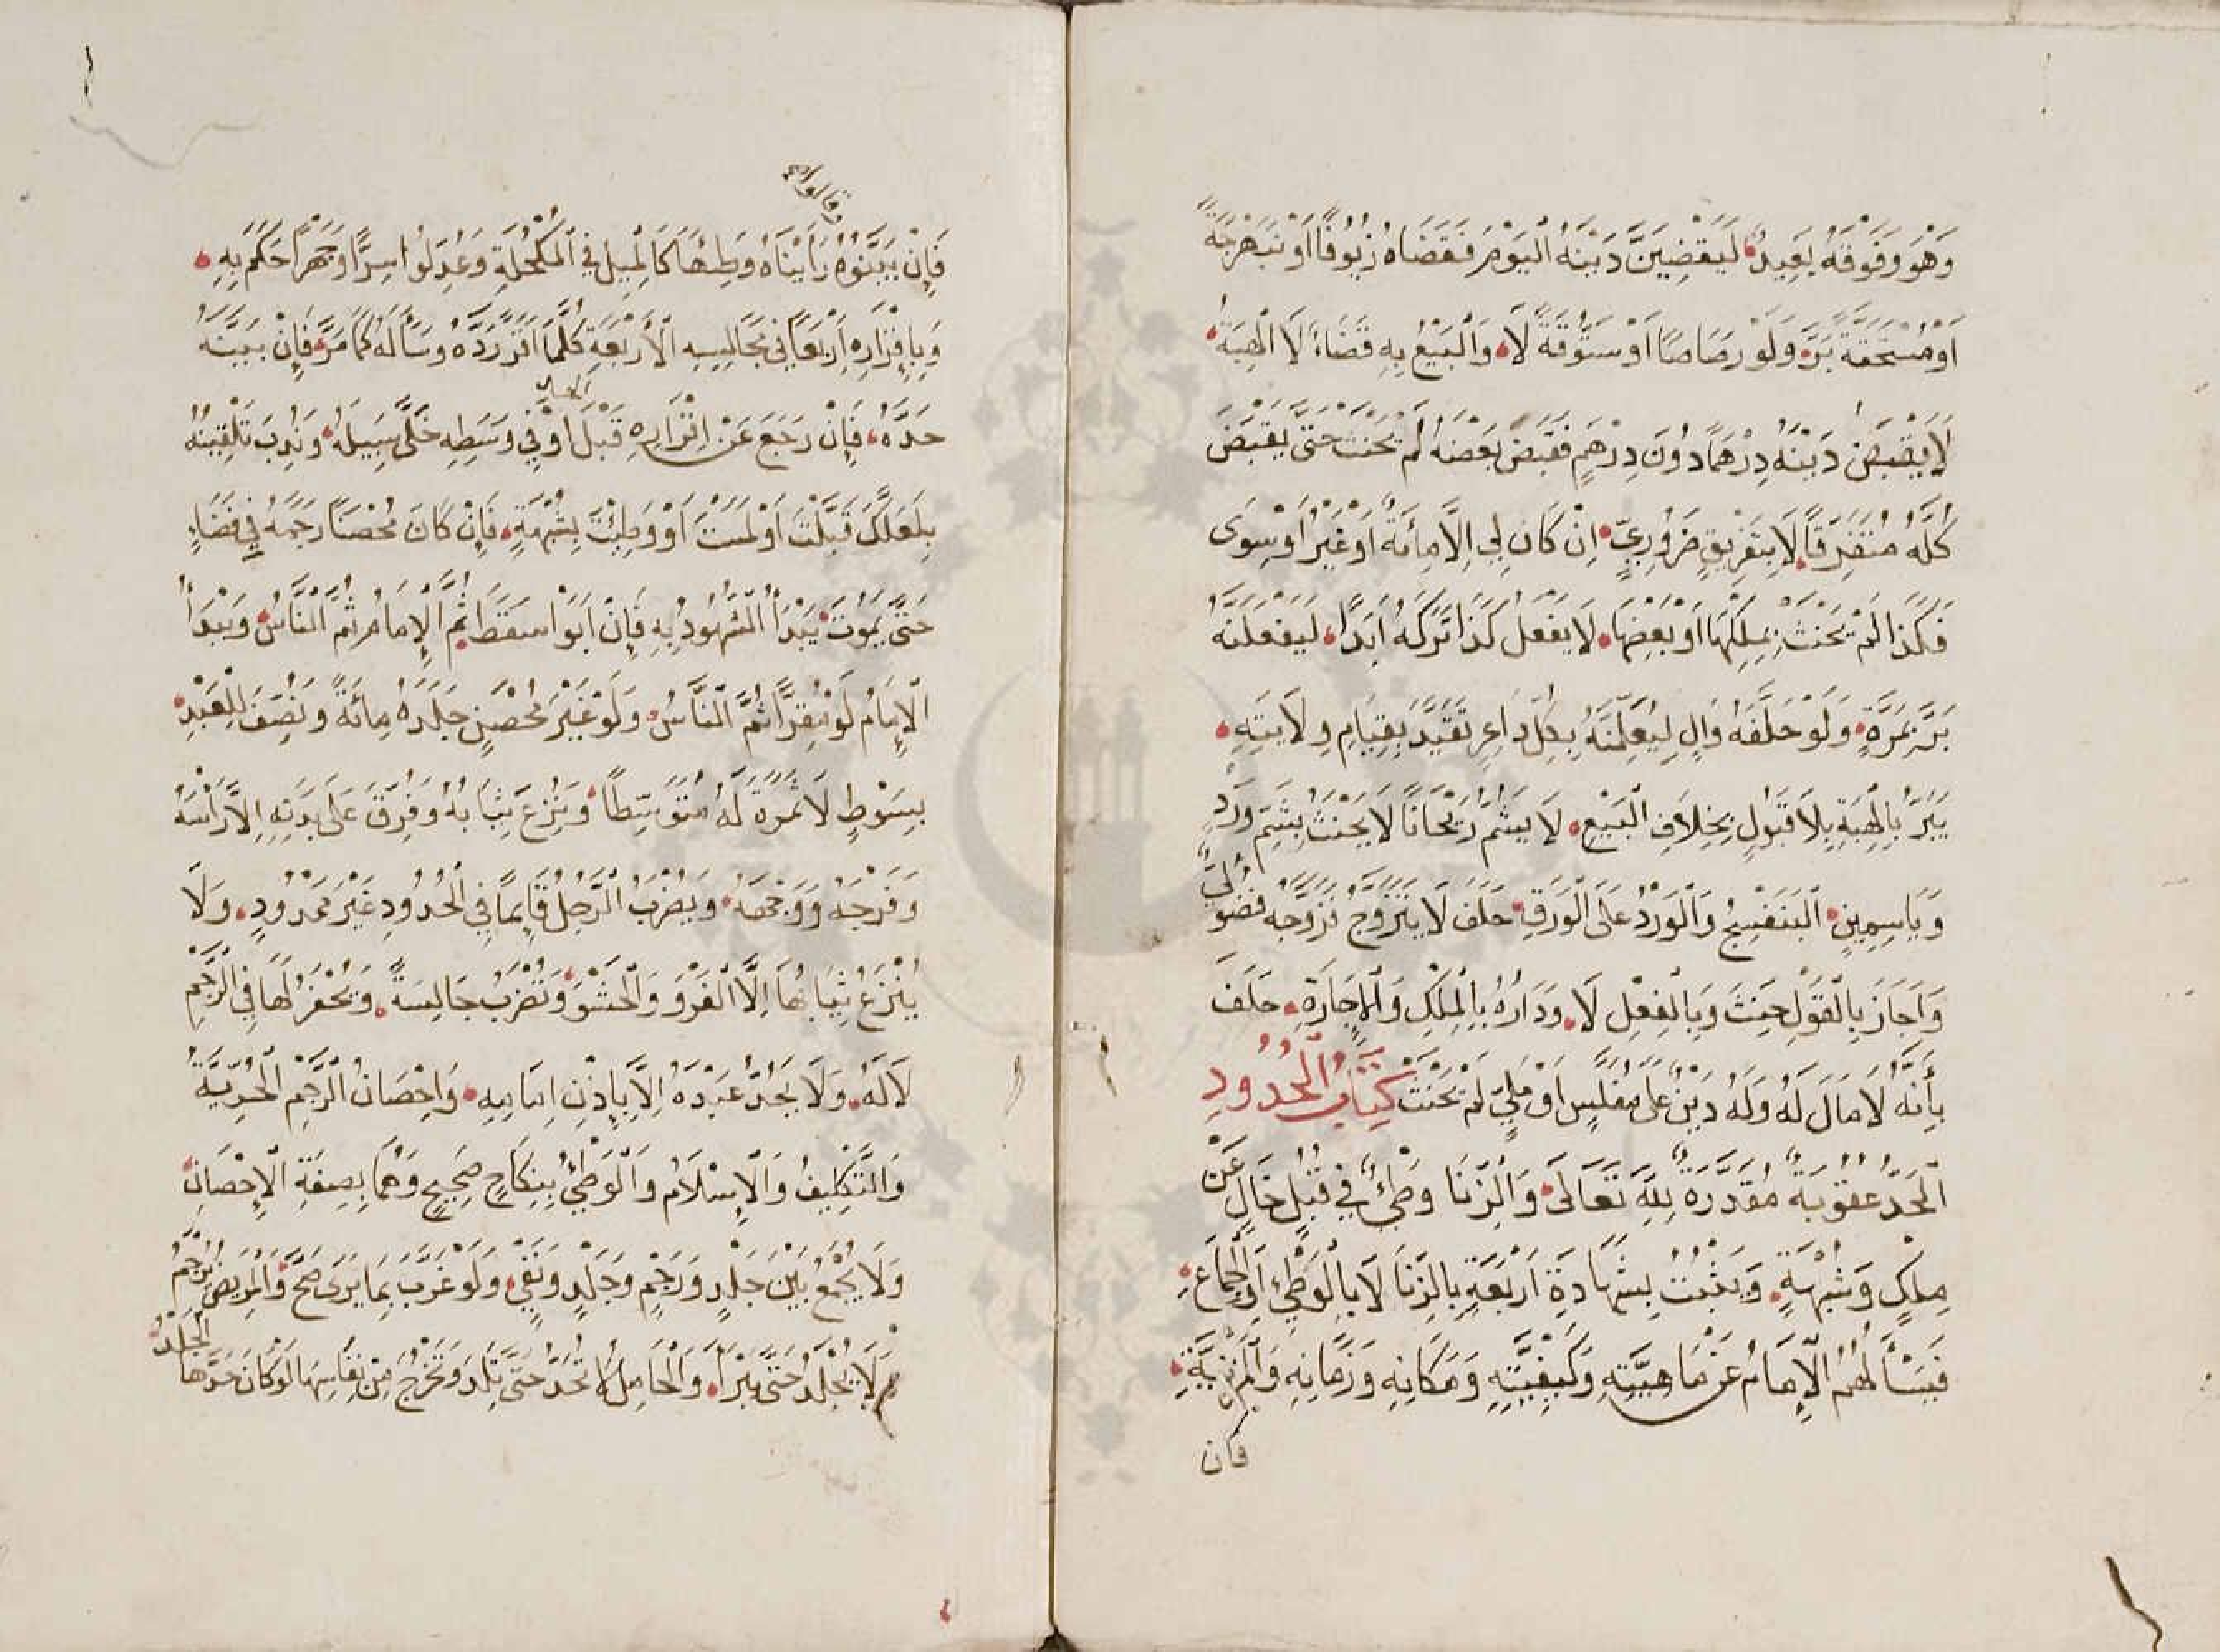 وَهُوَ وَفَوْقَهُ بَعِيدٌ لَيَقْضِيَنَّ دَيْنَهُ الْيَوْمَ فَقَضَاهُ زُيُوفًا اَوْ نَبَهْرَجَةً
اَوْ مُسْتَحَقَّةً بَرَّ وَلَوْ رَصَاصًا اَوْ سَتُّوقَةً لَا وَالْبَيْعُ بِهِ قَضَاءٌ لَا الْهِبَةُ
لَا يَقْبِضُ دَيْنَهُ دِرْهَمًا دُونَ دِرْهَمٍ فَقَبَضَ بَعْضَهُ لَمْ يَحْنَثْ حَتَّى يَقْبِضَ
كُلَّهُ مُتَفَرِّقًا لَا بِتَفْرِيقٍ ضَرُورِيٍّ اِنْ كَانَ لِي اِلَّا مِائَةٌ اَوْ غَيْرُ اَوْ سِوَى
فَكَذَا لَمْ يَحْنَثْ بِمِلْكِهَا اَوْ بَعْضِهَا لَا يَفْعَلُ كَذَا تَرَكَهُ اَبَدًا لَيَفْعَلَنَّهُ
بَرَّ بِمَرَّةٍ وَلَوْ حَلَّفَهُ وَالٍ لِيُعْلِمَنَّهُ بِكُلِّ دَاعِرٍ تَقَيَّدَ بِقِيَامِ وِلَايَتِهِ
يَبَرُّ بِالْهِبَةِ بِلَا قَبُولٍ بِخِلَافِ الْبَيْعِ لَا يَشُمُّ رَيْحَانًا لَا يَحْنَثُ بِشَمِّ وَرْدٍ
وَيَاسِمِينٍ الْبَنَفْسَجُ وَالْوَرْدُ عَلَى الْوَرَقِ حَلَفَ لَا يَتَزَوَّجُ فَزَوَّجَهُ فُضُولِيٌّ
وَاَجَازَ بِالْقَوْلِ حَنِثَ وَبِالْفِعْلِ لَا وَدَارُهُ بِالْمِلْكِ وَالْاِجَارَةِ حَلَفَ
بِأَنَّهُ لَا مَالَ لَهُ وَلَهُ دَيْنٌ عَلَى مُفْلِسٍ اَوْ مَلِيٍّ لَمْ يَحْنَثْ كِتَابُ الْحُدُودِ
الْحَدُّ عُقُوبَةٌ مُقَدَّرَةٌ لِلّٰهِ تَعَالَى وَالزِّنَا وَطْئٌ فِي قُبُلٍ خَالٍ عَنْ
مِلْكٍ وَشُبْهَةٍ وَيَثْبُتُ بِشَهَادَةِ اَرْبَعَةٍ بِالزِّنَا لَا بِالْوَطْئِ اَوِ الْجِمَاعِ
فَيَسْأَلُهُمُ الْاِمَامُ عَنْ مَاهِيَّتِهِ وَكَيْفِيَّتِهِ وَمَكَانِهِ وَزَمَانِهِ وَالْمَزْنِيَّةِ
فان
وقالوا
فَاِنْ بَيَّنُوهُ رَاَيْنَاهُ وَطِئَهَا كَالْمِيلِ فِي الْمُكْحُلَةِ وَعُدِّلُوا سِرًّا وَجَهْرًا حَكَمَ بِهِ
وَبِاِقْرَارِهِ اَرْبَعًا فِي مَجَالِسِهِ الْاَرْبَعَةِ كُلَّمَا اَقَرَّ رَدَّهُ وَسَأَلَهُ كَمَا مَرَّ فَاِنْ بَيَّنَهُ
حَدَّهُ فَاِنْ رَجَعَ عَنْ اِقْرَارِهِ قَبْلَ اَوْ فِي وَسَطِهِ خَلَّى سَبِيلَهُ وَنُدِبَ تَلْقِينُهُ
بِلَعَلَّكَ قَبَّلْتَ اَوْ لَمَسْتَ اَوْ وَطِئْتَ بِشُبْهَةٍ فَاِنْ كَانَ مُحْصَنًا رَجَمَهُ فِي فَضَاءٍ
حَتَّى يَمُوتَ يَبْدَأُ الشُّهُودُ بِهِ فَاِنْ اَبَوْا سَقَطَ ثُمَّ الْاِمَامُ ثُمَّ النَّاسُ وَيَبْدَأُ
الْاِمَامُ لَوْ مُقِرًّا ثُمَّ النَّاسُ وَلَوْ غَيْرَ مُحْصَنٍ جَلَدَهُ مِائَةً وَنُصِّفَ لِلْعَبْدِ
بِسَوْطٍ لَا ثَمَرَةَ لَهُ مُتَوَسِّطًا وَنَزَعَ ثِيَابَهُ وَفَرَّقَ عَلَى بَدَنِهِ اِلَّا رَاْسَهُ
وَفَرْجَهُ وَوَجْهَهُ وَيُضْرَبُ الرَّجُلُ قَائِمًا فِي الْحُدُودِ غَيْرَ مَمْدُودٍ وَلَا
يُنْزَعُ ثِيَابُهَا اِلَّا الْفَرْوَ وَالْحَشْوَ وَتُضْرَبُ جَالِسَةً وَيُحْفَرُ لَهَا فِي الرَّجْمِ
لَا لَهُ وَلَا يَحُدُّ عَبْدَهُ اِلَّا بِاِذْنِ اِمَامِهِ وَاِحْصَانُ الرَّجْمِ الْحُرِّيَّةُ
وَالتَّكْلِيفُ وَالْاِسْلَامُ وَالْوَطْئُ بِنِكَاحٍ صَحِيحٍ وَهُمَا بِصِفَةِ الْاِحْصَانِ
وَلَا يُجْمَعُ بَيْنَ جَلْدٍ وَرَجْمٍ وَجَلْدٍ وَنَفْيٍ وَلَوْ غَرَّبَ بِمَا يَرَى صَحَّ وَالْمَرِيضُ يُرْجَمُ
وَلَا يُجْلَدُ حَتَّى يَبْرَأَ وَالْحَامِلُ لَا تُحَدُّ حَتَّى تَلِدَ وَتَخْرُجَ مِنْ نِفَاسِهَا لَوْ كَانَ حَدُّهَا الْجَلْدُ